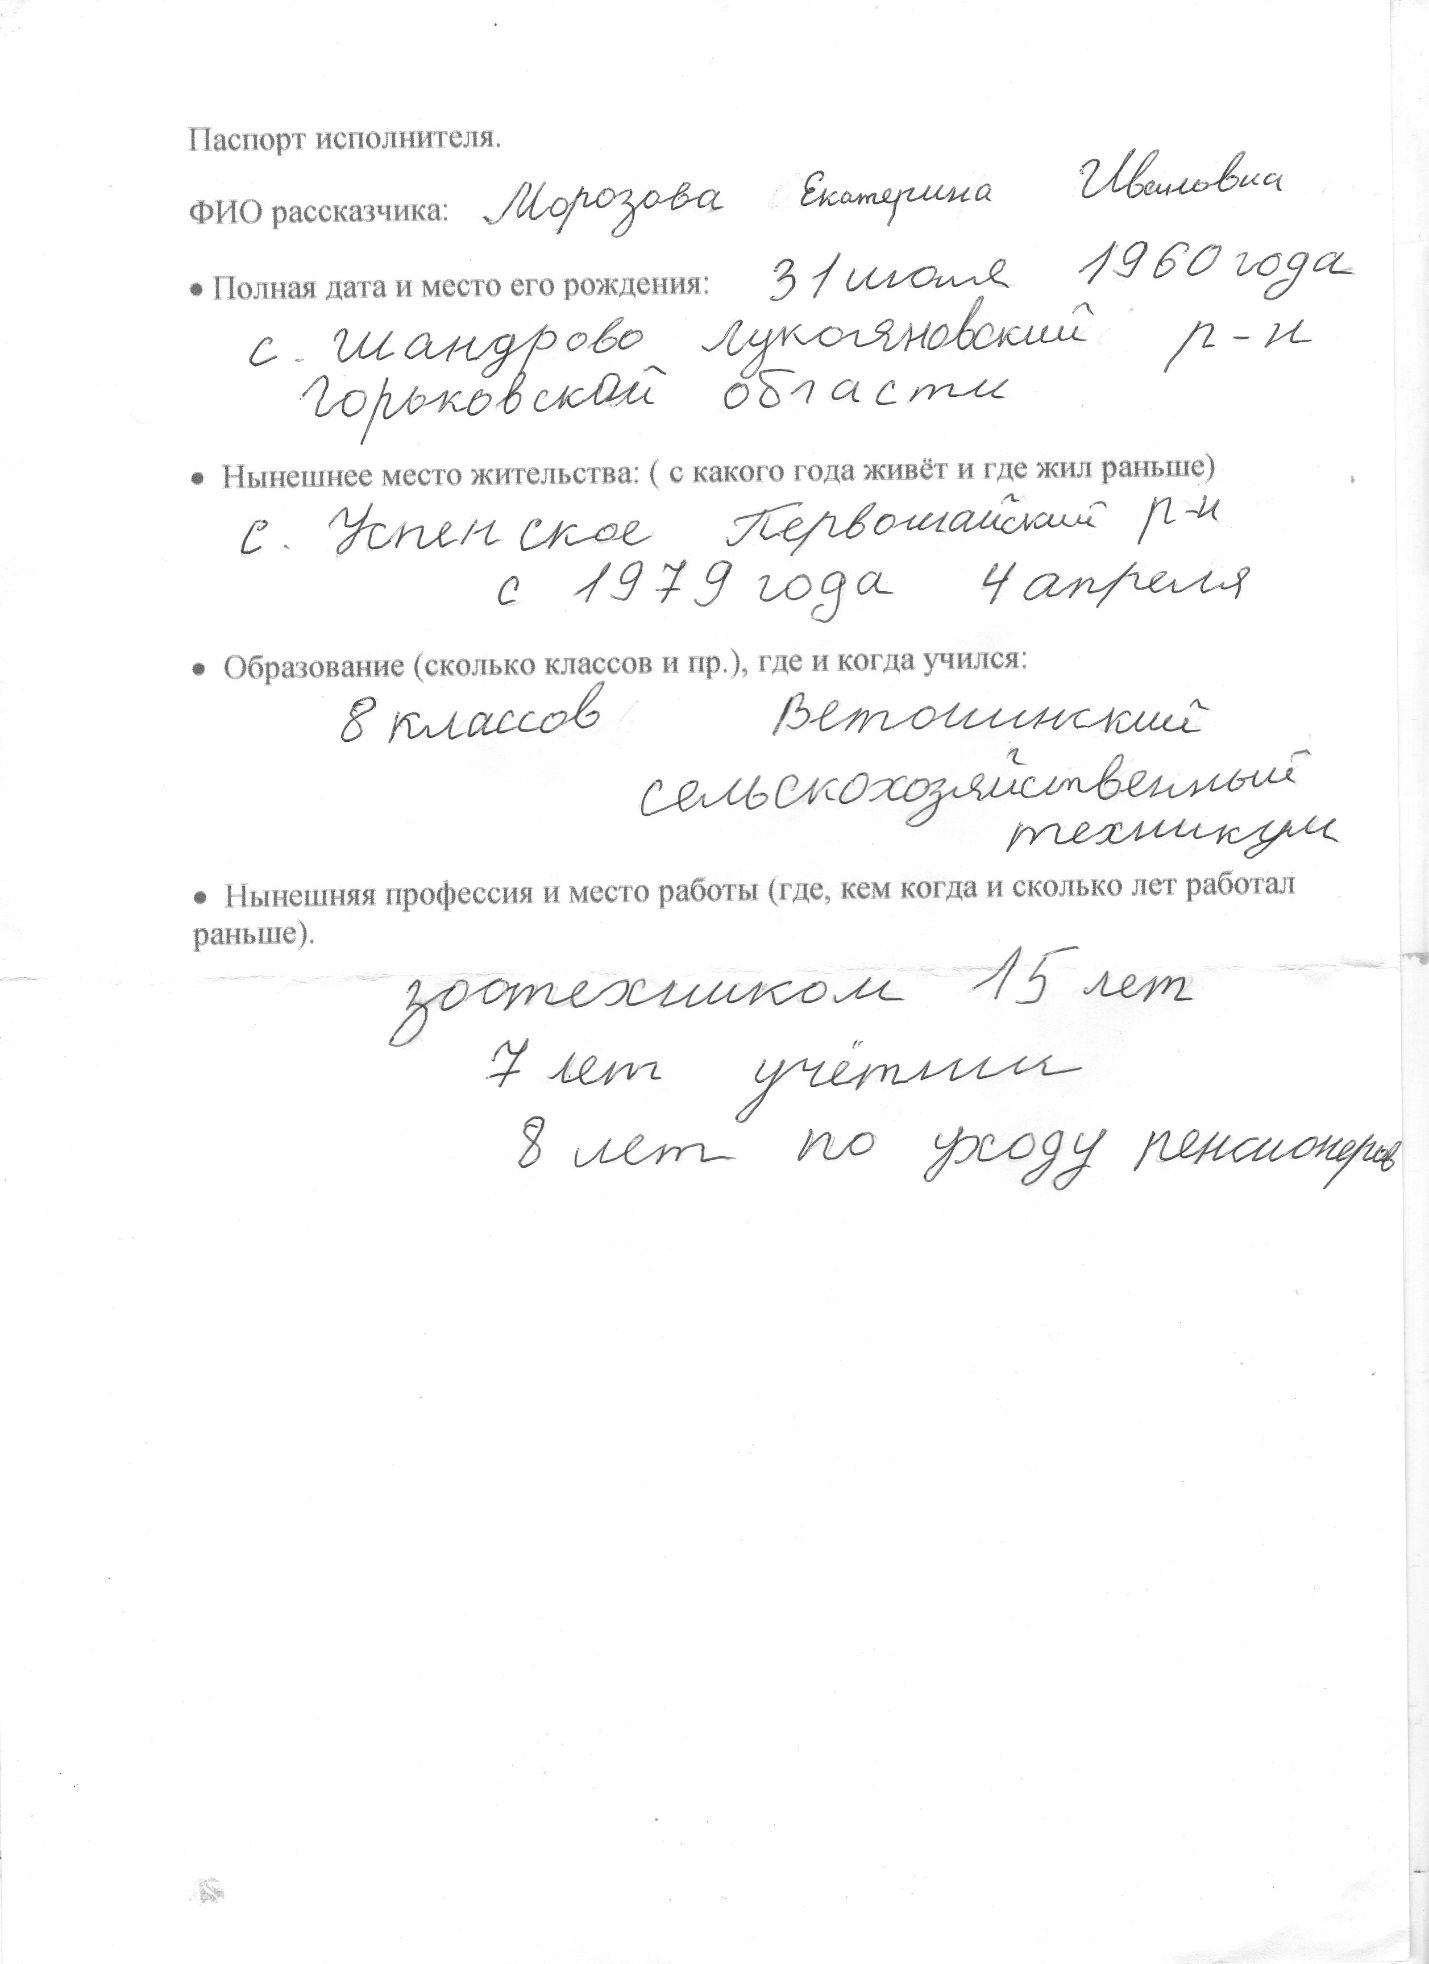 Паспорт исполнителя.
ФИО рассказчика: Морозова Екатерина Ивановна
• Полная дата и место его рождения: 31 июля 1960 года
с. Шандрово Лукояновский р-н
Горьковской области
• Нынешнее место жительства: ( с какого года живёт и где жил раньше)
с. Успенское Первомайский р-н
с 1979 года 4 апреля
• Образование (сколько классов и пр.), где и когда учился:
8 классов Ветошинский
сельскохозяйственный
техникум
• Нынешняя профессия и место работы (где, кем когда и сколько лет работал
раньше).
зоотехником 15 лет
7 лет учётчик
8 лет по уходу пенсионеров